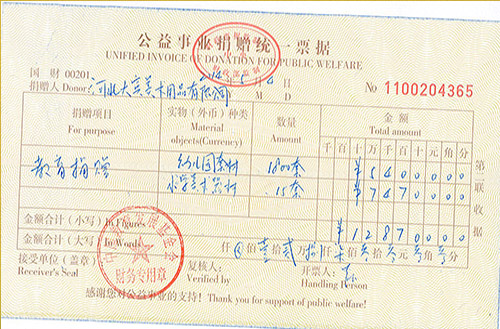 公益事业捐赠统一票据
UNIFIED INVOICE OF DONATION FOR PUBLIC WELFARE
国 财 00201 Y M D
捐赠人 Donor: 河北大京美术用品有限公司 No 1100204365
捐赠项目 For purpose 实物（外币）种类 Material objects(Currency) 数量 Amount 金 额 Total amount
千 百 十 万 千 百 十 元 角 分
教育捐赠 幼儿园素材 1800套 ¥ 5 4 0 0 0 0 0
15套 ¥ 7 4 7 0 0 0 0
金额合计（小写）In Figures ¥ 1 2 8 7 0 0 0 0
金额合计（大写）In Words 仟 佰 壹 拾 贰 万 仟 佰 拾 元 角 分
接受单位（盖章） Receiver's Seal 复核人： Verified by 开票人： Handling Person
感谢您对公益事业的支持！Thank you for support of public welfare!
第二联 收据
发展基金会
财务专用章